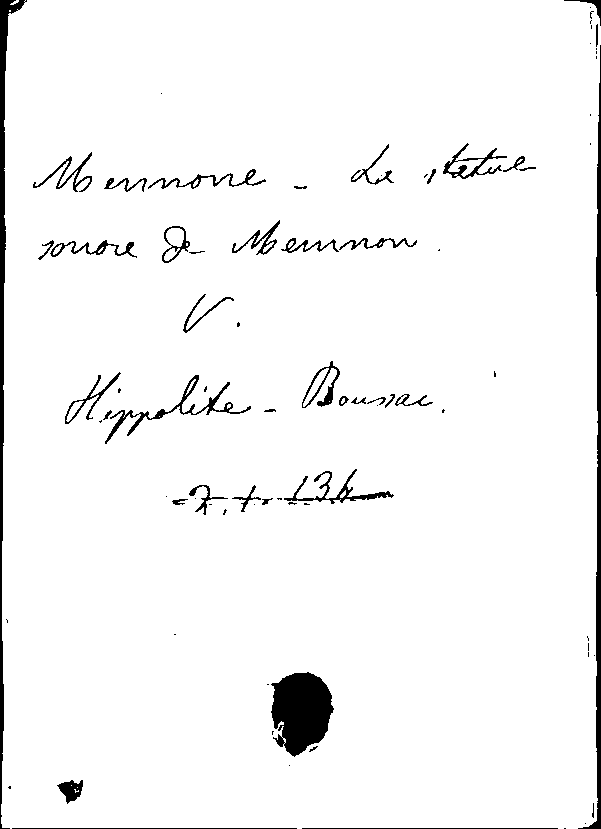 Memnone - La statue
sonore de Memnon.
V.
Hippolite - Boussac.